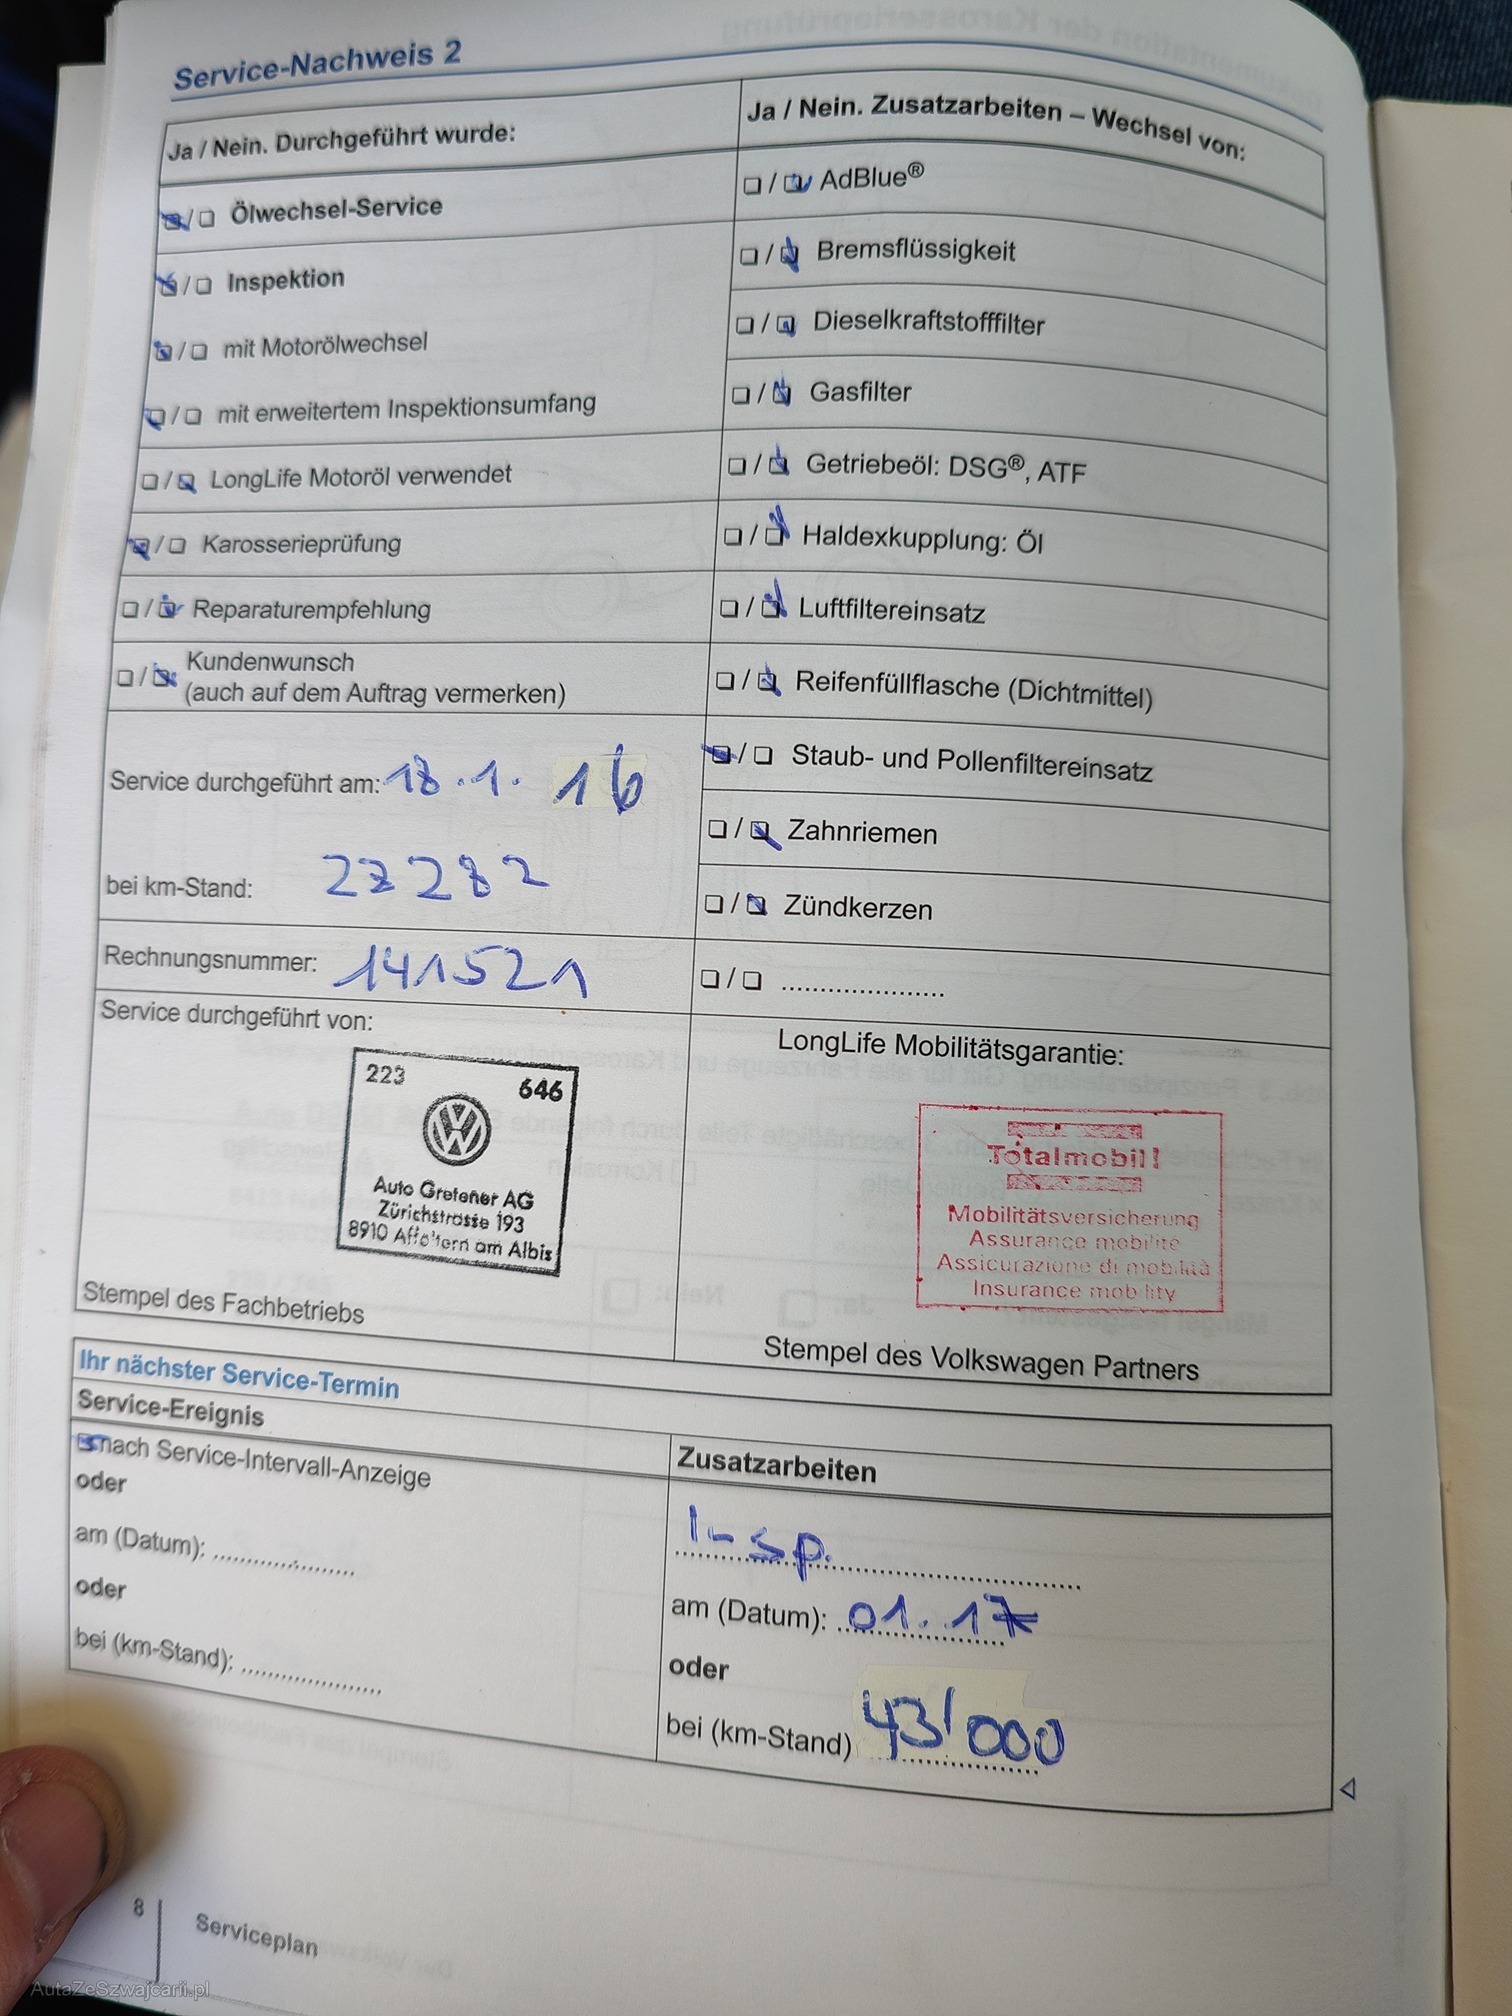 Service-Nachweis 2
Ja / Nein. Durchgeführt wurde:
Ölwechsel-Service
Inspektion
mit Motorölwechsel
mit erweitertem Inspektionsumfang
LongLife Motoröl verwendet
Karosserieprüfung
Reparaturempfehlung
Kundenwunsch
(auch auf dem Auftrag vermerken)
Service durchgeführt am: 18.1. 16
bei km-Stand: 27282
Rechnungsnummer: 141521
Service durchgeführt von:
223 646
Auto Grefener AG
Zürichstrasse 193
8910 Affoltern am Albis
Stempel des Fachbetriebs
Ja / Nein. Zusatzarbeiten – Wechsel von:
AdBlue®
Bremsflüssigkeit
Dieselkraftstofffilter
Gasfilter
Getriebeöl: DSG®, ATF
Haldexkupplung: Öl
Luftfiltereinsatz
Reifenfüllflasche (Dichtmittel)
Staub- und Pollenfiltereinsatz
Zahnriemen
Zündkerzen
LongLife Mobilitätsgarantie:
Totalmobil!
Mobilitätsversicherung
Assurance mobilité
Assicurazione di mobilità
Insurance mobility
Stempel des Volkswagen Partners
Ihr nächster Service-Termin
Service-Ereignis
nach Service-Intervall-Anzeige
oder
am (Datum):
oder
bei (km-Stand):
Zusatzarbeiten
Insp.
am (Datum): 01.17
oder
bei (km-Stand) 43'000
8
Serviceplan
AutaZeSzwajcarii.pl